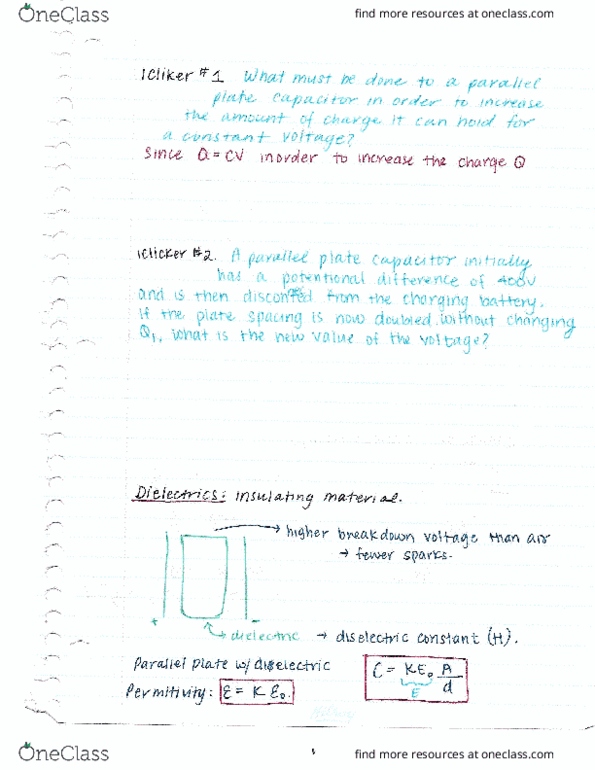 OneClass
find more resources at oneclass.com
iCliker #1 What must be done to a parallel
plate capacitor in order to increase
the amount of charge it can hold for
a constant voltage?
Since Q = CV inorder to increase the charge Q
iclicker #2. A parallel plate capacitor initially
has a potentional difference of 400V
and is then disconted from the charging battery.
If the plate spacing is now doubled, without changing
Q1, what is the new value of the voltage?
Dielectrics: insulating material.
→ higher breakdown voltage than air
→ fewer sparks.
+ -
→ dielectric → diselectric constant (H).
Parallel plate w/ diselectric
C = KE₀ A/d
E
Permitivity: E = K E₀.
1
OneClass
find more resources at oneclass.com